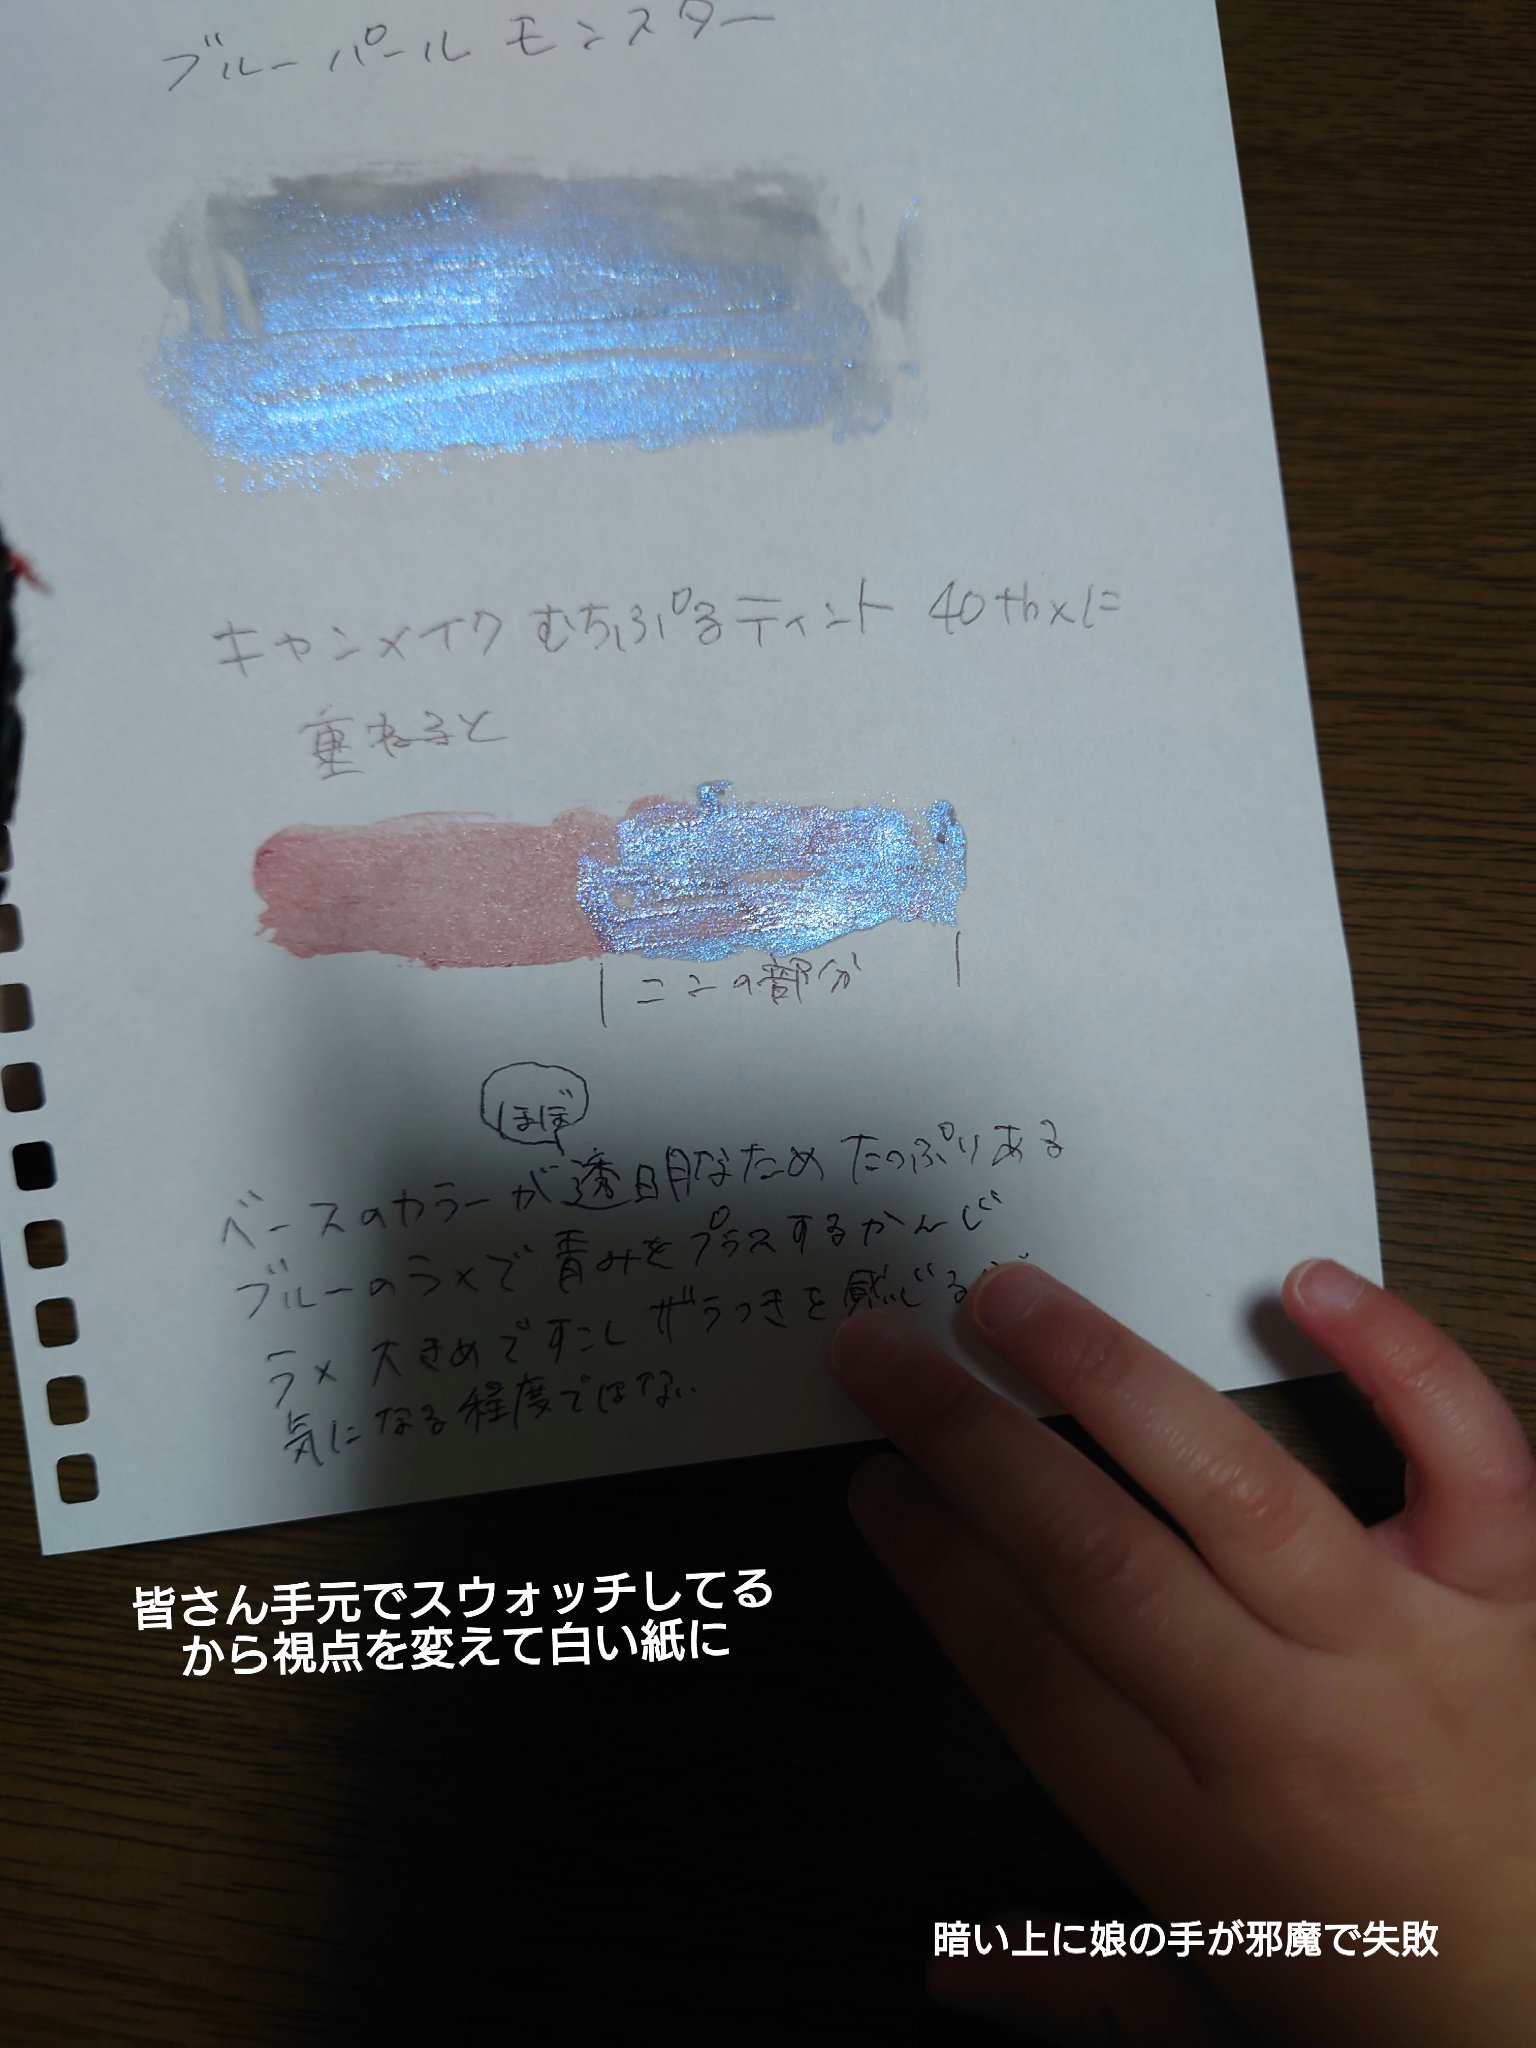 ブルーパールモンスター
キャンメイク むちぷるティント 40thxに
重ねると
ここの部分
ほぼ
ベースのカラーが透明なため たっぷりある
ブルーのラメで青みをプラスするかんじ
ラメ大きめですこしザラつきを感じる
気になる程度ではない
皆さん手元でスウォッチしてる
から視点を変えて白い紙に
暗い上に娘の手が邪魔で失敗